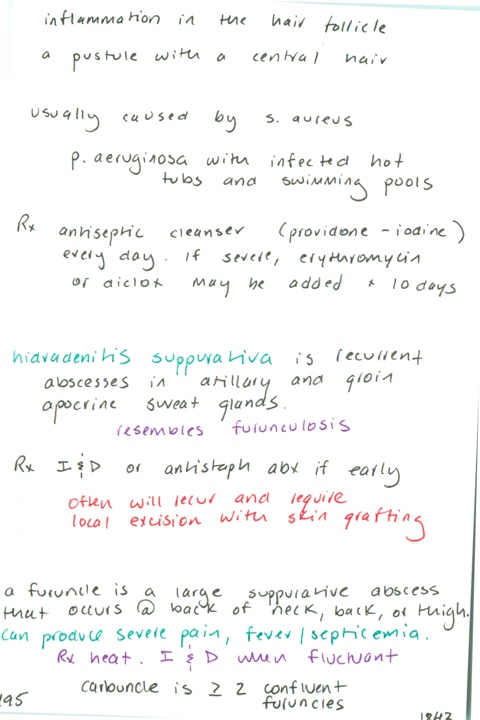 inflammation in the hair follicle
a pustule with a central hair
usually caused by s. aureus
p. aeruginosa with infected hot
tubs and swimming pools
Rx antiseptic cleanser (providone-iodine)
every day. If severe, erythromycin
or diclox may be added x 10 days
hidradenitis suppurativa is recurrent
abscesses in axillary and groin
apocrine sweat glands.
resembles furunculosis
Rx I & D or antistaph abx if early
often will recur and require
local excision with skin grafting
a furuncle is a large suppurative abscess
that occurs @ back of neck, back, or thigh.
can produce severe pain, fever/septicemia.
Rx heat. I & D when fluctuant
carbuncle is ≥ 2 confluent
furuncles
195
1842